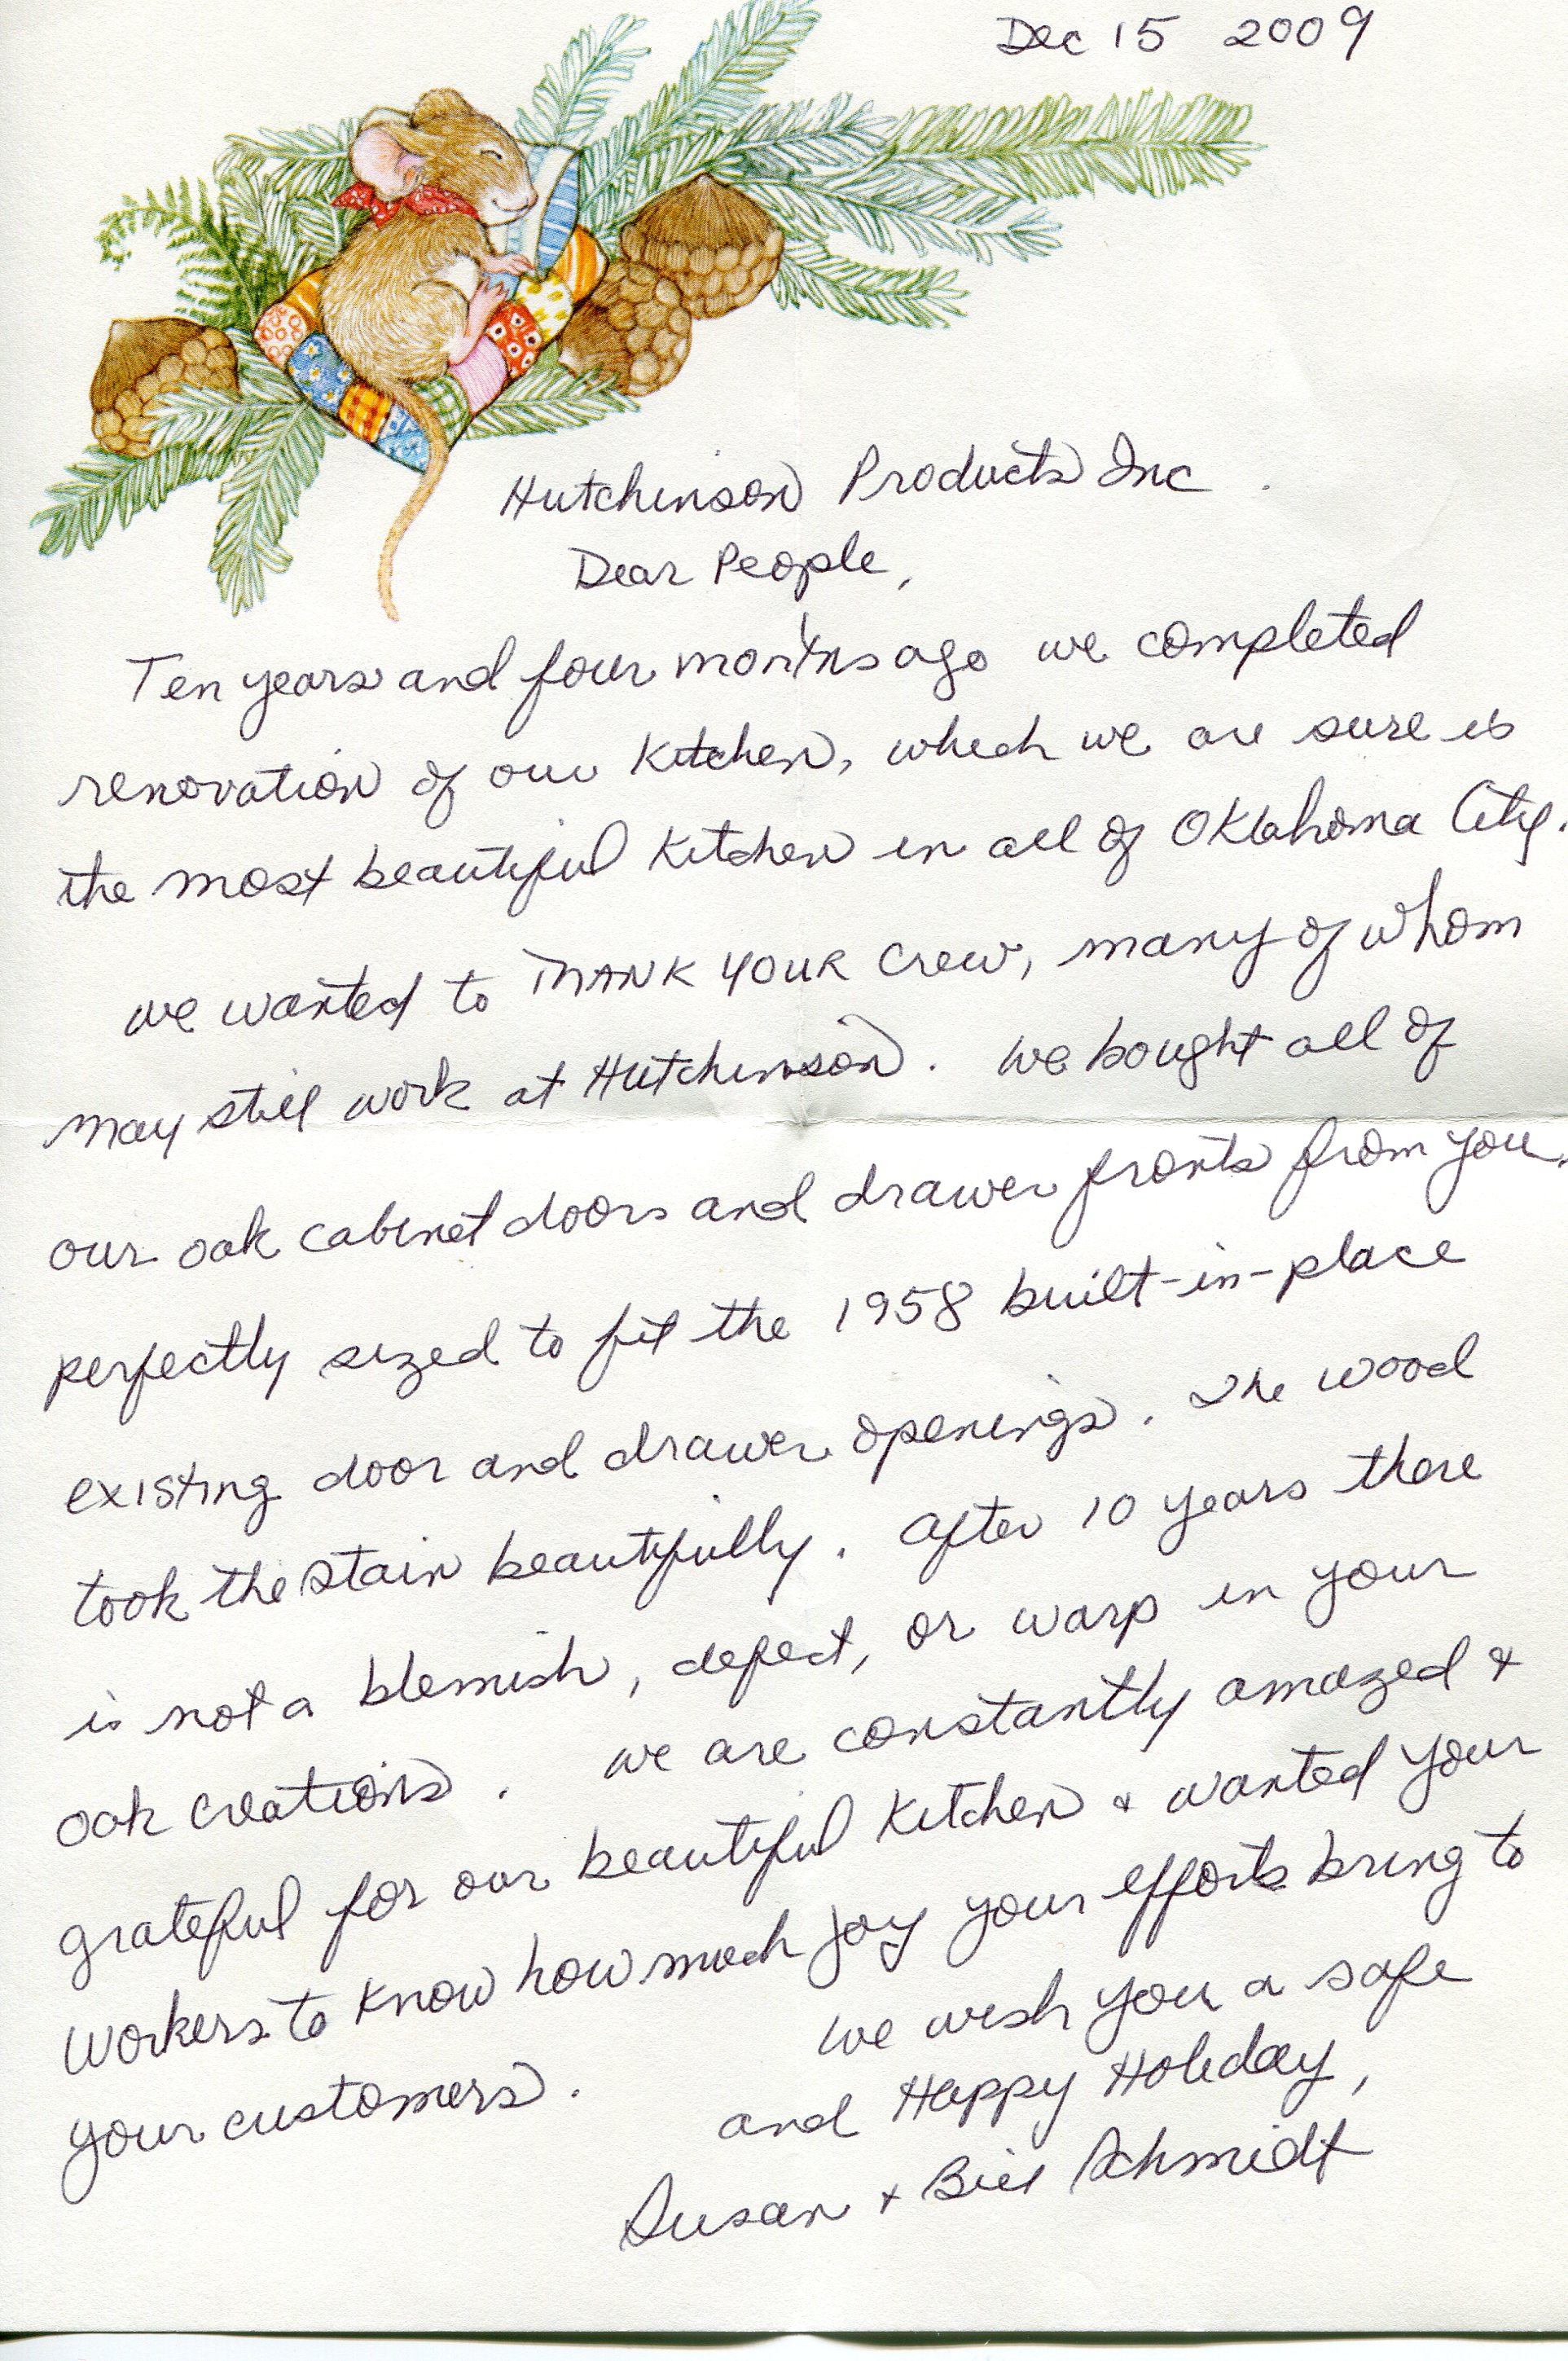 Dec 15 2009
Hutchinson Products Inc.
Dear People,
Ten years and four months ago we completed
renovation of our kitchen, which we are sure is
the most beautiful kitchen in all of Oklahoma City.
we wanted to THANK YOUR crew, many of whom
may still work at Hutchinson. We bought all of
our oak cabinet doors and drawer fronts from you,
perfectly sized to fit the 1958 built-in-place
existing door and drawer openings. The wood
took the stain beautifully. After 10 years there
is not a blemish, defect, or warp in your
oak creations. We are constantly amazed &
grateful for our beautiful kitchen & wanted your
workers to know how much joy your efforts bring to
your customers.
We wish you a safe
and Happy Holiday,
Susan & Bill Schmidt